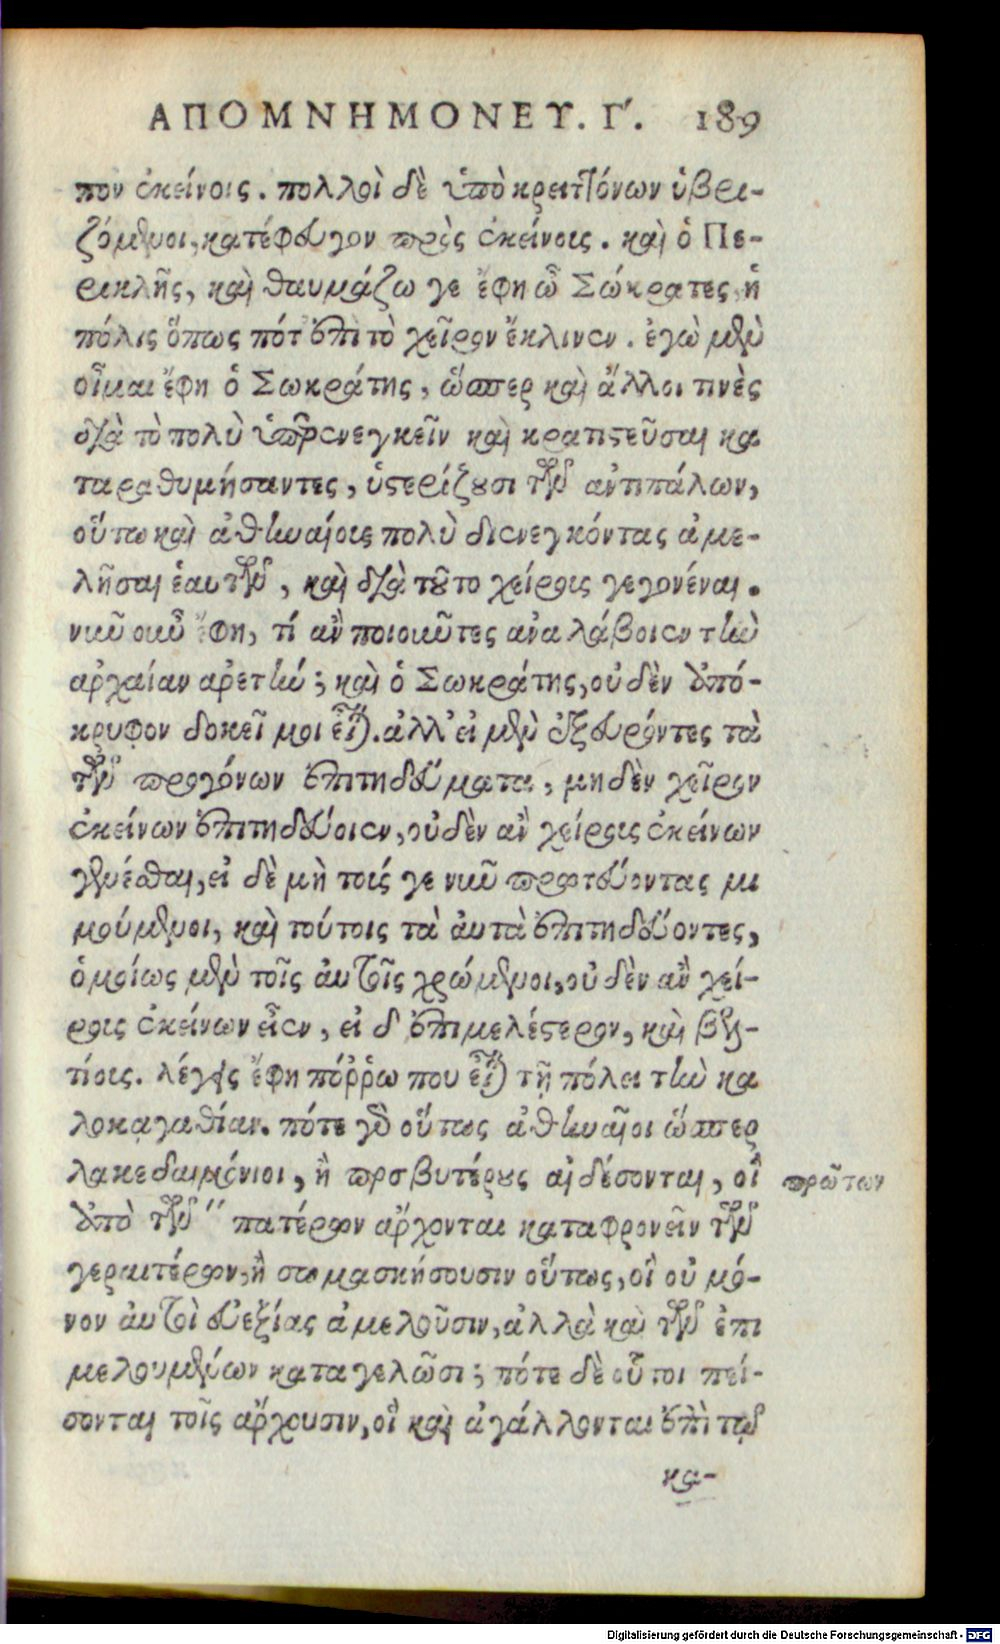 ΑΠΟΜΝΗΜΟΝΕΥ. Γ΄. 189
πον ἐκείνοις. πολλοὶ δὲ ὑπὸ κρειττόνων ὑβρι-
ζόμενοι, κατέφευγον πρὸς ἐκείνοις. καὶ ὁ Πε-
ρικλῆς, καὶ θαυμάζω γε ἔφη ὦ Σώκρατες ἡ
πόλις ὅπως πότ' ἐπὶ τὸ χεῖρον ἔκλινεν. ἐγὼ μὲν
οἶμαι ἔφη ὁ Σωκράτης, ὥσπερ καὶ ἄλλοι τινὲς
διὰ τὸ πολὺ ὑπερενεγκεῖν καὶ κρατιστεῦσαι κα
ταραθυμήσαντες, ὑστερίζουσι τῶν αντιπάλων,
οὕτω καὶ ἀθηναίοις πολὺ διενεγκόντας ἀμε-
λῆσαι ἑαυτῶν, καὶ διὰ τοῦτο χείροις γεγονέναι.
νῦν οὖν ἔφη, τί ἂν ποιοῦντες ἀναλάβοιεν τὴν
αρχαίαν αρετήν; καὶ ὁ Σωκράτης, οὐδὲν ἀπό-
κρυφον δοκεῖ μοι εἶναι. ἀλλ' εἰ μὲν ἐξευρόντες τὰ
τῶν προγόνων ἐπιτηδεύματα, μηδὲν χεῖρον
ἐκείνων ἐπιτηδεύοιεν, οὐδὲν ἂν χείροις ἐκείνων
γενέσθαι, εἰ δὲ μὴ τούς γε νῦν πρωτεύοντας μι
μούμενοι, καὶ τούτοις τὰ ἀυτὰ ἐπιτηδεύοντες,
ὁμοίως μὲν τοῖς ἀυτοῖς χρώμενοι, οὐδὲν ἂν χεί-
ροις ἐκείνων εἶεν, εἰ δ' ἐπιμελέστερον, καὶ βελ-
τίοις. λέγεις ἔφη πόῤῥω που εἶναι τῇ πόλει τὴν κα
λοκαγαθίαν. πότε γὰρ οὕτως ἀθηναῖοι ὥσπερ
λακεδαιμόνιοι, ἢ πρεσβυτέρους αἰδέσονται, οἳ πρῶτον
ἀπὸ τῶν " πατέρων αρχονται καταφρονεῖν τῶν
γεραιτέρων, ἢ σωμασκήσουσιν οὕτως, οἳ οὐ μό-
νον ἀυτοὶ εὐεξίας ἀμελοῦσιν, ἀλλὰ καὶ τῶν ἐπι
μελουμένων καταγελῶσι; πότε δὲ οὕτοι πεί-
σονται τοῖς αρχουσιν, οἳ καὶ ἀγάλλονται ἐπὶ τῷ
κα-
Digitalisierung gefördert durch die Deutsche Forschungsgemeinschaft - DFG